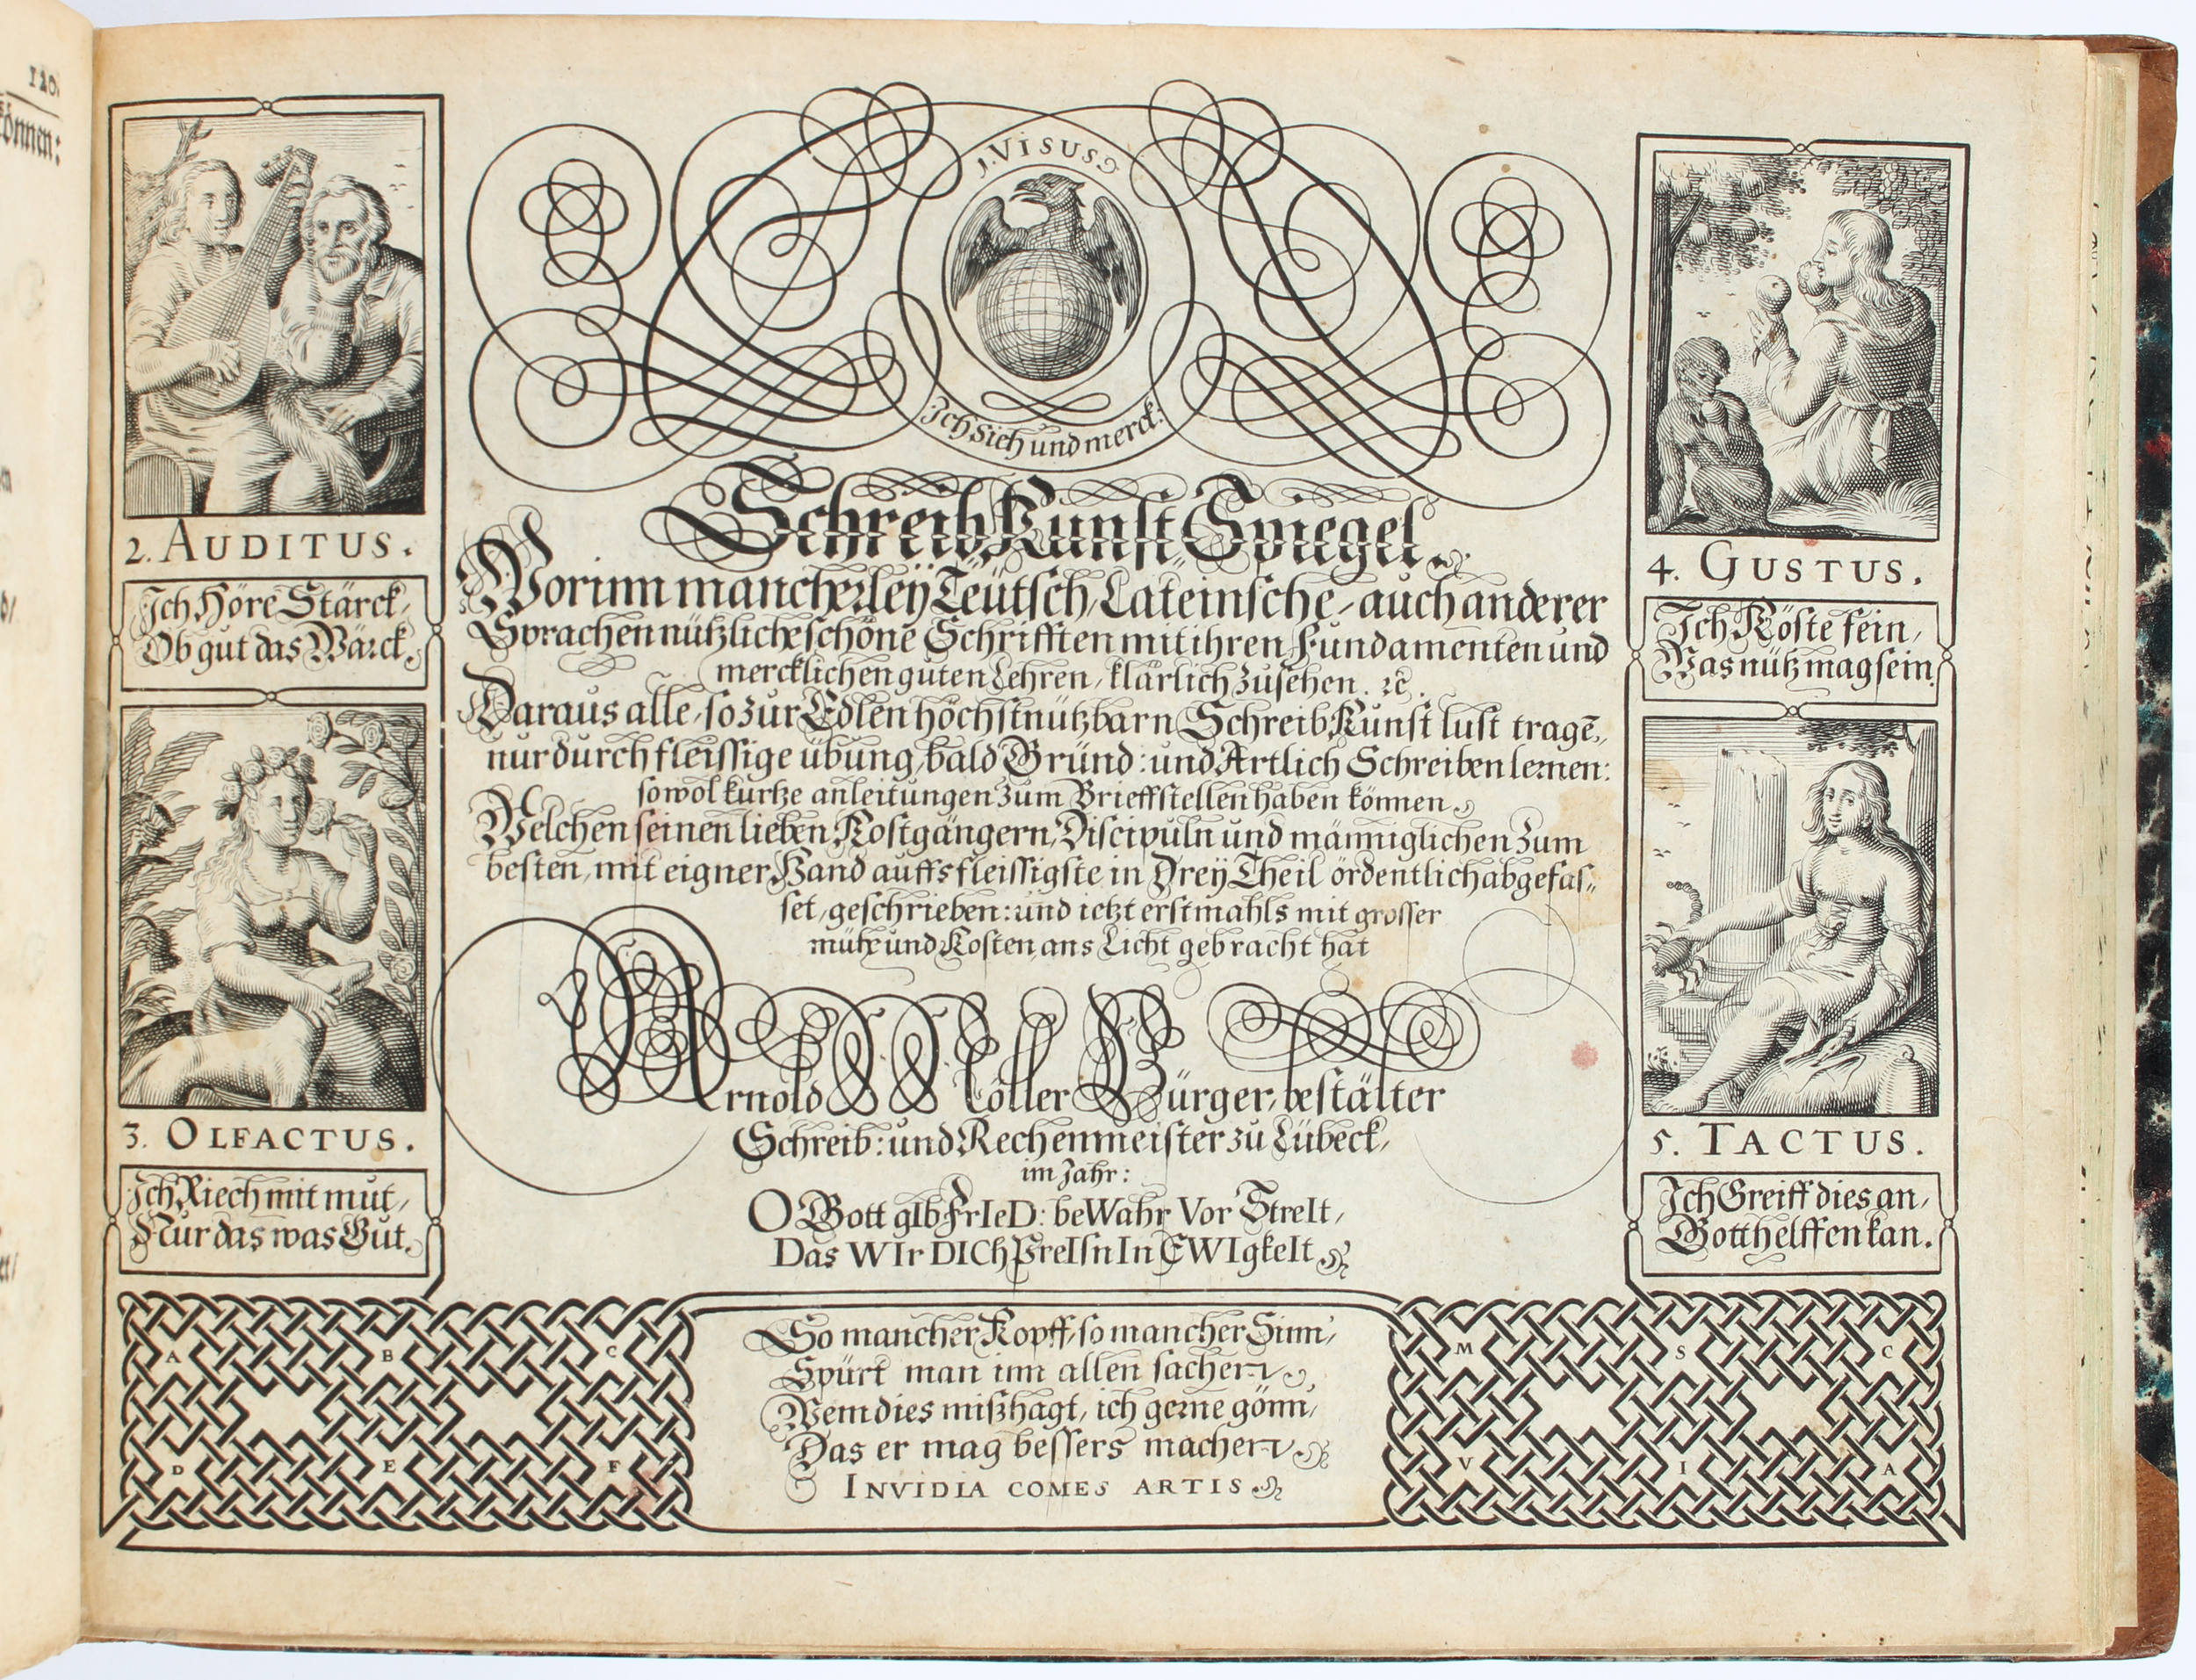 120.
können:
1. VISUS
Ich Sieh und merck:
2. AUDITUS.
Ich Höre Stärck,
Ob gut das Wärck.
3. OLFACTUS.
Ich Riech mit mut,
Nur das was Gut.
SchreibKunst Spiegel.
Worinn mancherleÿ Teütsch, Lateinsche, auch anderer
Sprachen nützliche schöne Schrifften mit ihren Fundamenten und
mercklichen guten Lehren, klärlich zusehen. ꝛc.
Daraus alle, so zur Edlen höchstnützbarn SchreibKunst lust tragē,
nur durch fleissige übung, bald Gründ: und Artlich Schreiben lernen:
sowol kurtze anleitungen zum Brieffstellen haben können
Welchen seinen lieben Kostgängern, Discipuln und männiglichen zum
besten, mit eigner Hand auffs fleissigste in Dreÿ Theil ördentlich abgefas„
set, geschrieben: und ietzt erstmahls mit grosser
mühe und Kosten ans Licht gebracht hat
Arnold Möller Bürger, bestälter
Schreib: und Rechenmeister zu Lübeck,
im Jahr:
O Gott gIb FrIeD: beWahr Vor StreIt,
Das WIr DICh PreIsn In EWIgkeIt
4. GUSTUS.
Ich Köste fein,
Was nütz mag sein.
5. TACTUS.
Ich Greiff dies an,
Gott helffen kan.
A B C
D E F
So mancher Kopff, so mancher Sinn,
Spürt man inn allen sachen
Wem dies mißhagt, ich gerne gönn,
Das er mag bessers machen
INVIDIA COMES ARTIS
M S C
V I A